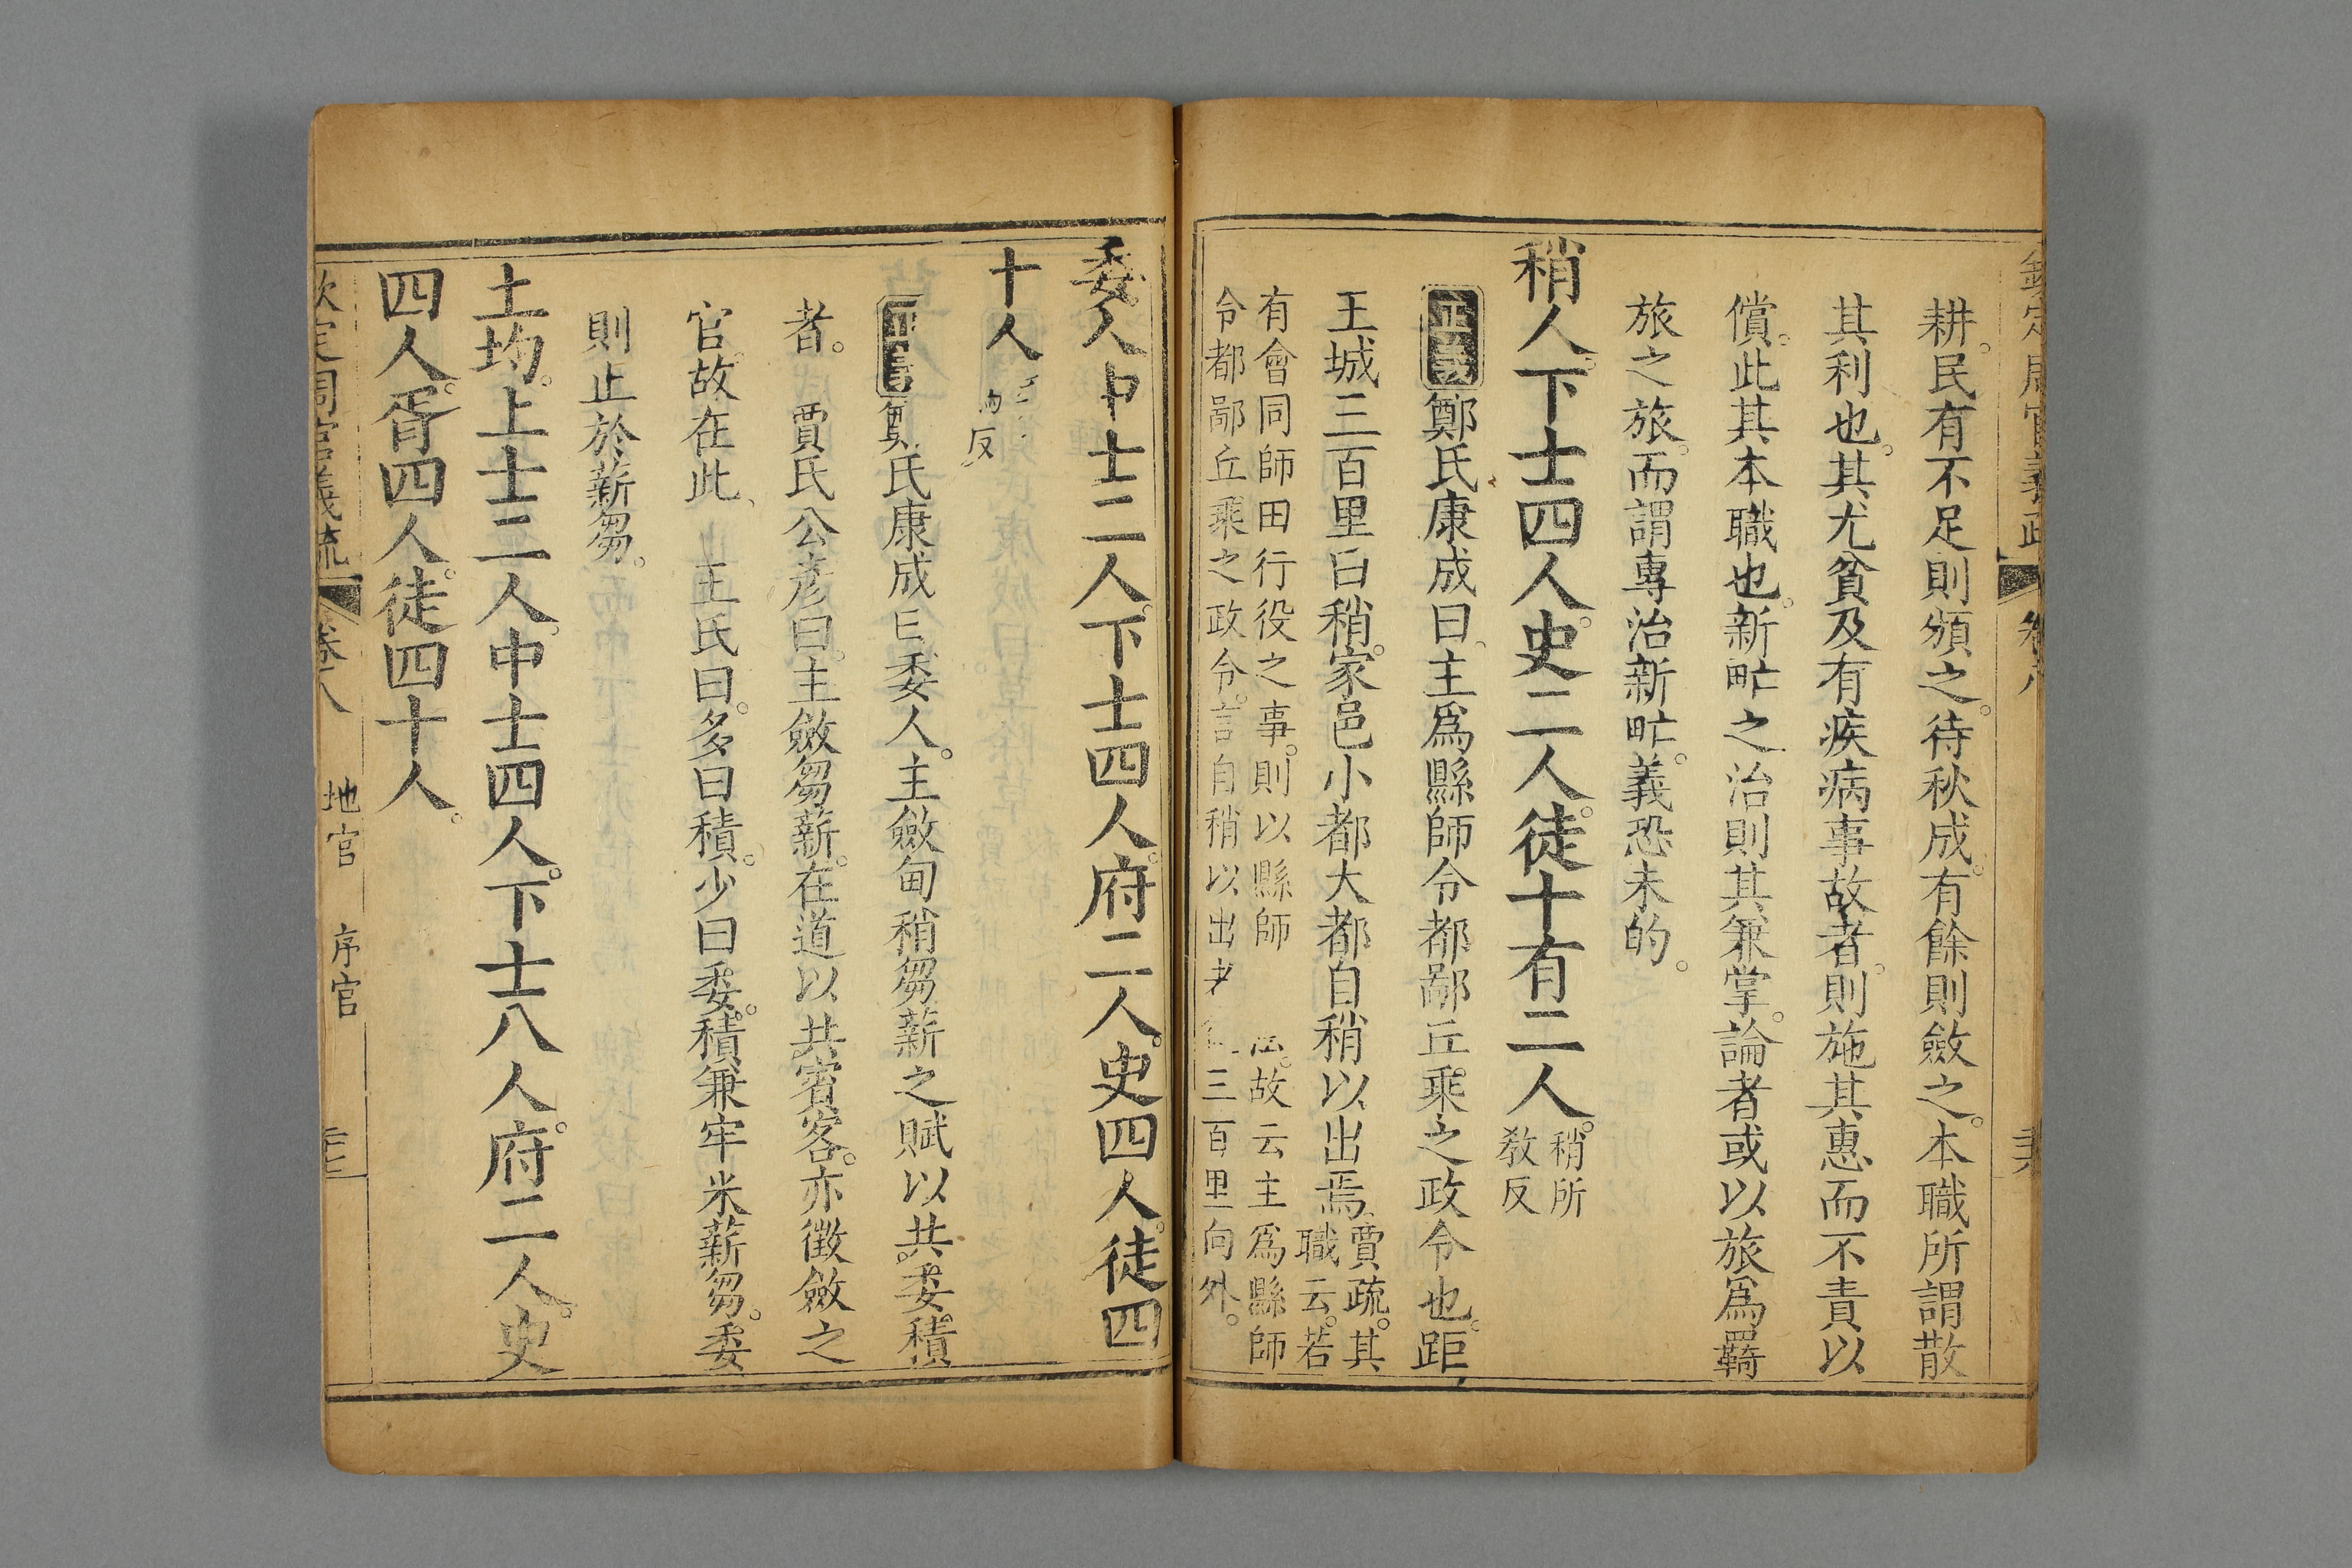 耕民有不足則頒之待秋成有餘則斂之本職所謂散
其利也其尤貧及有疾病事故者則施其惠而不責以
償此其本職也新甿之治則其兼掌論者或以旅爲羇
旅之旅而謂專治新甿義恐未的
稍人下士四人史二人徒十有二人
稍所
敎反
正義鄭氏康成曰主爲縣師令都鄙丘乘之政令也距
王城三百里曰稍家邑小都大都自稍以出焉
賈疏其
職云若
有會同師田行役之事則以縣師
故云主爲縣師
令都鄙丘乘之政令言自稍以出
三百里向外
委人中士二人下士四人府二人史四人徒四
十人
反
正義鄭氏康成曰委人主斂甸稍芻薪之賦以共委積
者 賈氏公彥曰主斂芻薪在道以共賓客亦徵斂之
官故在此 王氏曰多曰積少曰委積兼牢米薪芻委
則止於薪芻
土均上士二人中士四人下士八人府二人史
四人胥四人徒四十人
欽定周官義疏 卷八 地官 序官